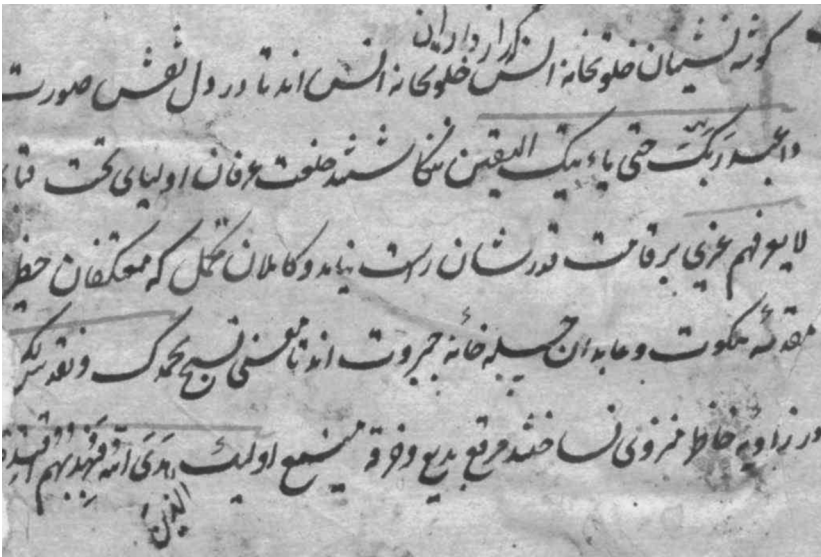 گزارداران
گوشه نشینان خلوتخانه انس خلوتخانه انس اند تا در دل نقش صورت
واعبد ربک حتی یاتیک الیقین ننگاشتند خلعت عرفان اولیای تحت قبا
لا یعرفهم غیری بر قامت قدرشان راست نیامد و کاملان مکمل که معتکفان
مقدسه ملکوت و عابدان چله خانه جبروت اند تا معنی نسبح بحمدک و نقدس لک
در زاویه خاطر منزوی نساختند مرقع بدیع و خرقه منیع اولئک هدی الله فبهدیهم اقتده
الذین